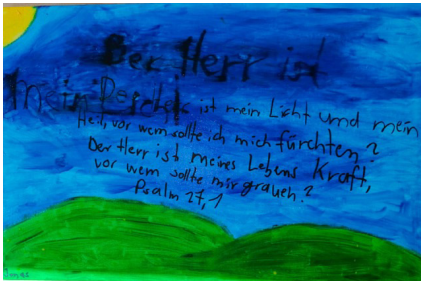 Der Herr ist
mein
ist mein Licht und mein
Heil, vor wem sollte ich mich fürchten?
Der Herr ist meines Lebens Kraft,
vor wem sollte mir grauen?
Psalm 27,1